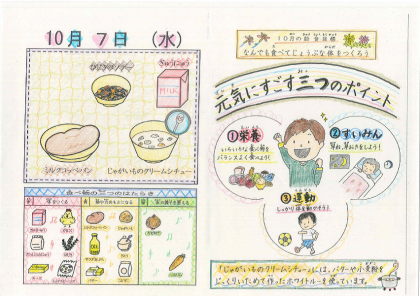 10月7日 (水)
ぎゅうにゅう
MILK
ミルクコッペパン
じゃがいものクリームシチュー
食べ物の三つのはたらき
10月の給食目標
なんでも食べてじょうぶな体をつくろう
元気にすごす三つのポイント
①栄養
いろいろな食べ物を
バランスよく食べよう!
②すいみん
早ね、早おきをしよう!
③運動
しっかり体を動かそう!
「じゃがいものクリームシチュー」には、バターや小麦粉を
じっくりいためて作ったホワイトルーを使っています。